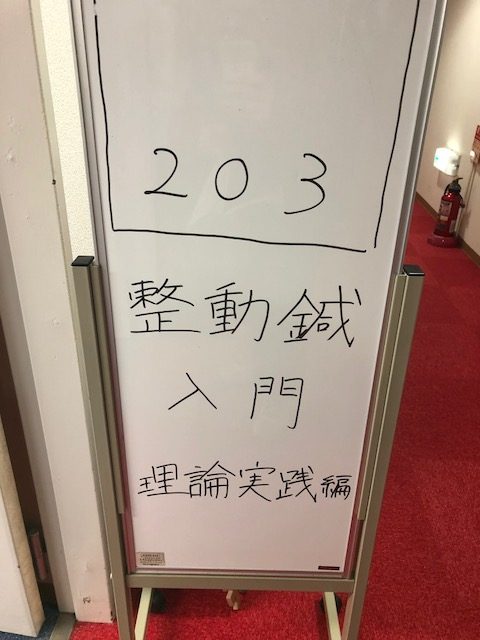 203
整動鍼
入門
理論実践編